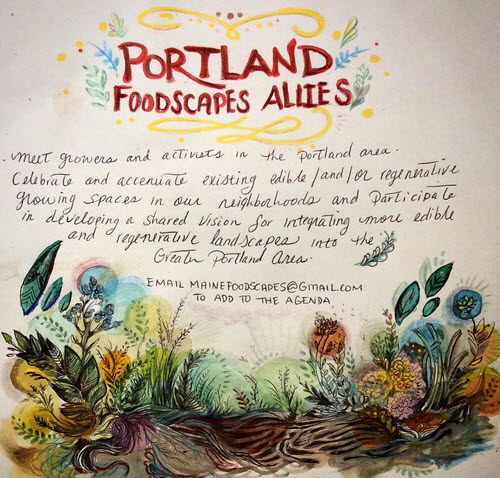 PORTLAND
FOODSCAPES ALLIES
. Meet growers and activists in the Portland area.
Celebrate and accenuate existing edible/and/or regenerative
growing spaces in our neighborhoods and Participate
in developing a shared vision for integrating more edible
and regenerative landscapes into the
Greater Portland Area.
EMAIL MAINEFOODSCAPES@GMAIL.COM
TO ADD TO THE AGENDA